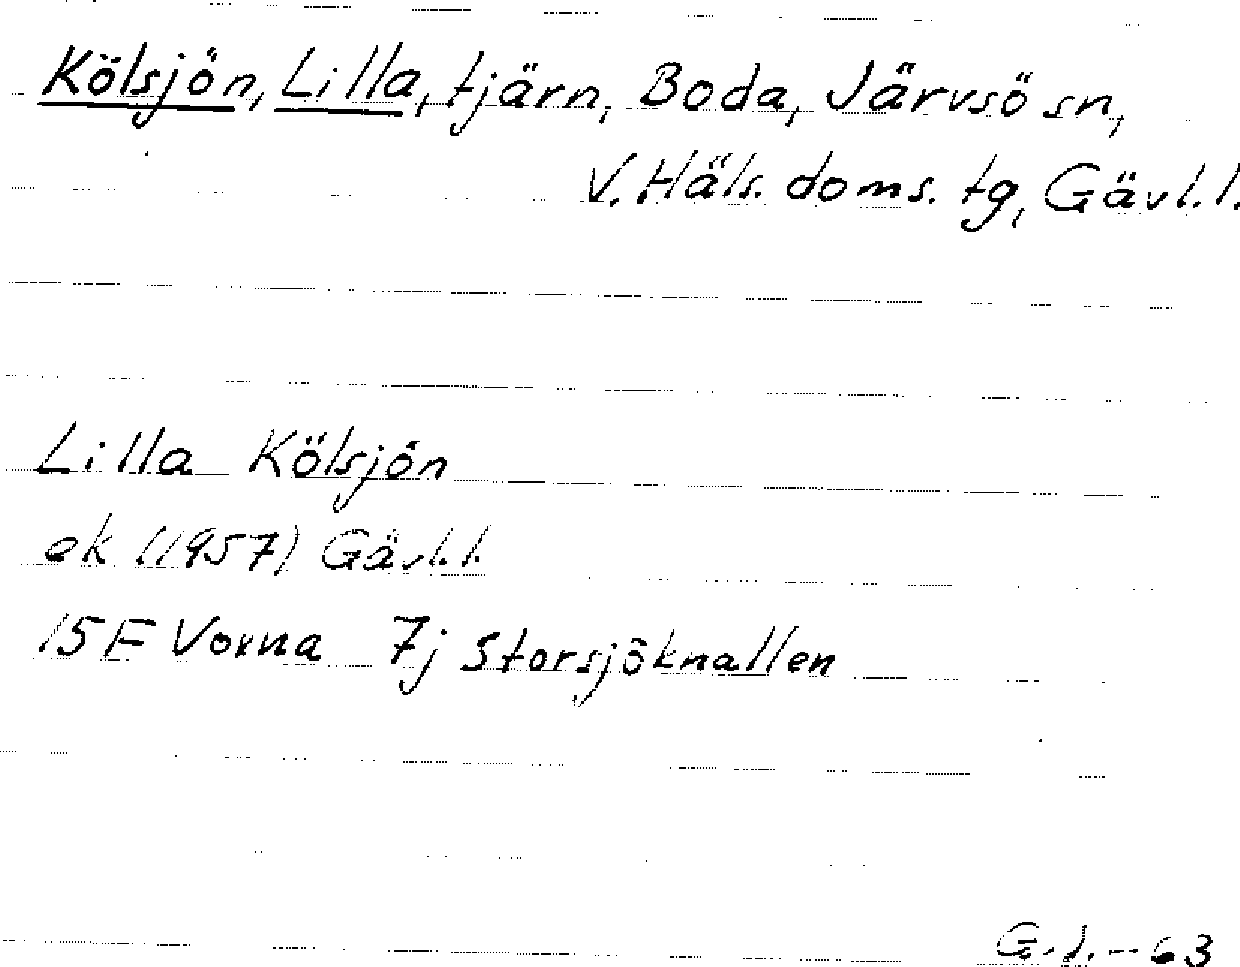 Kölsjön, Lilla, tjärn, Boda, Järvsö sn,
V. Häls. doms. tg, Gävl.l.
Lilla Kölsjön
ek (1957) Gävl.l.
15F Voxna 7j Storsjöknallen
G.d. -63